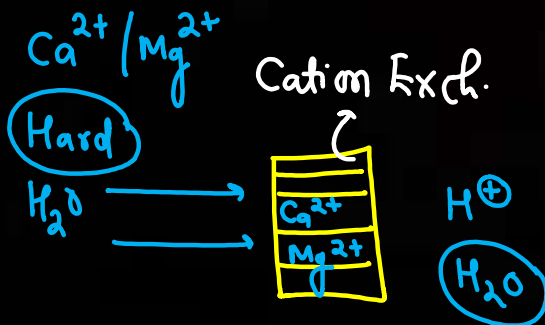 Ca²⁺/Mg²⁺
Cation Exch.
Hard
H₂O
Ca²⁺
Mg²⁺
H⊕
H₂O